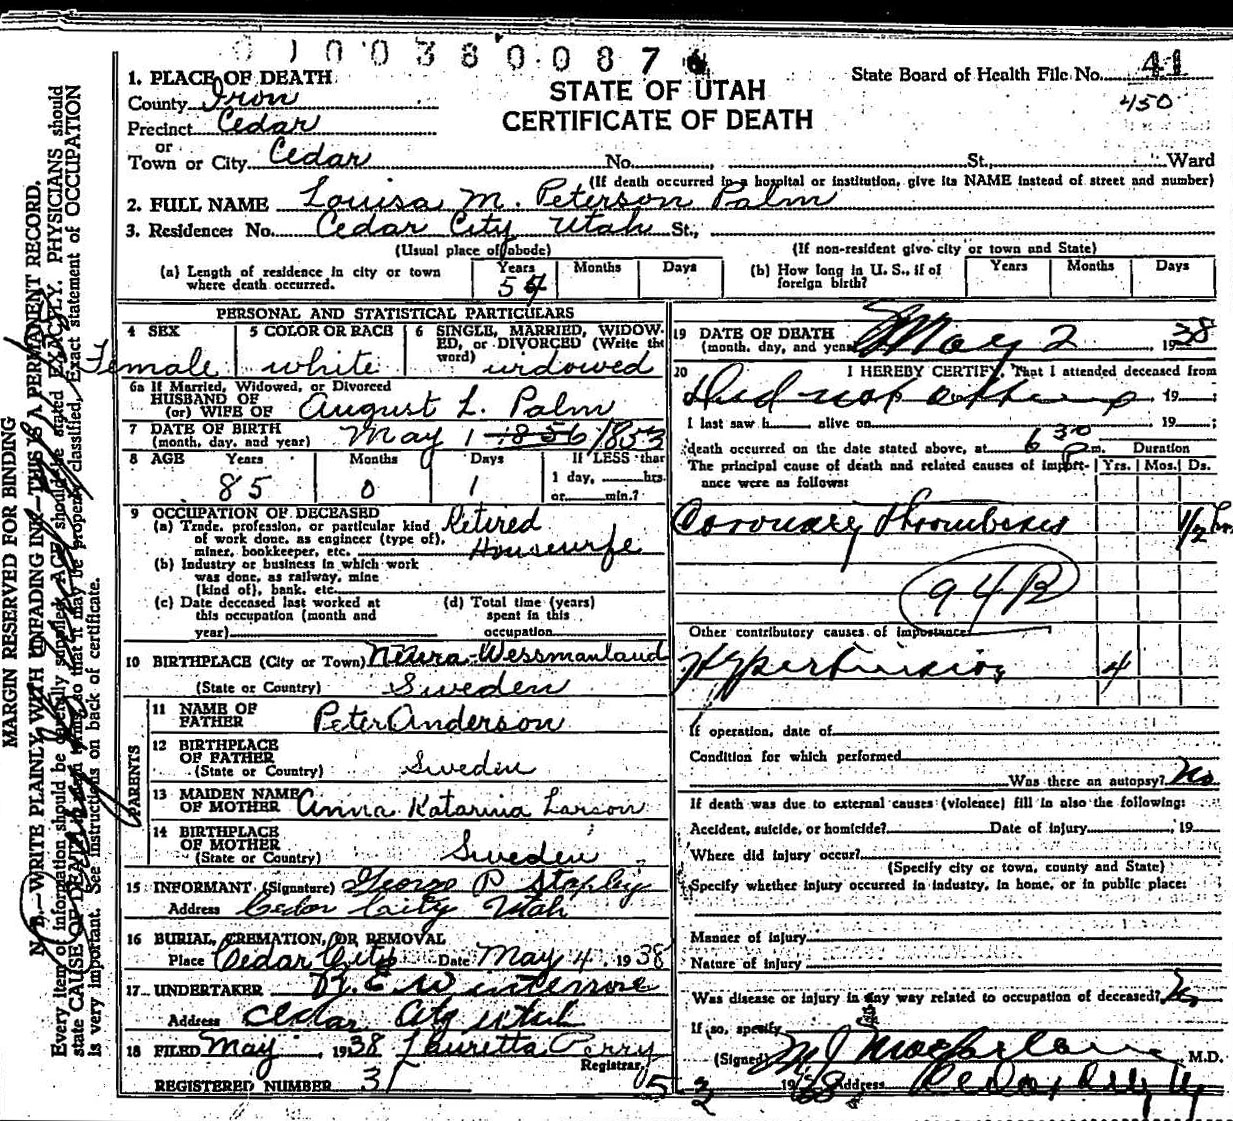 0100380087
State Board of Health File No. 41
450
STATE OF UTAH
CERTIFICATE OF DEATH
1. PLACE OF DEATH
County Iron
Precinct Cedar
or
Town or City Cedar No. St. Ward
(If death occurred in a hospital or institution, give its NAME instead of street and number)
2. FULL NAME Louisa M. Peterson Palm
3. Residence: No. Cedar City Utah St.,
(Usual place of abode) (If non-resident give city or town and State)
(a) Length of residence in city or town where death occurred. Years Months Days
(b) How long in U. S., if of foreign birth? Years Months Days
PERSONAL AND STATISTICAL PARTICULARS
4 SEX Female
5 COLOR OR RACE white
6 SINGLE, MARRIED, WIDOWED, or DIVORCED (Write the word) widowed
6a If Married, Widowed, or Divorced
HUSBAND OF
(or) WIFE OF August L. Palm
7 DATE OF BIRTH
(month, day, and year) May 1 1856 1853
8 AGE Years Months Days If LESS than
1 day, hrs.
or min.?
85 0 1
9 OCCUPATION OF DECEASED
(a) Trade, profession, or particular kind of work done, as engineer (type of), miner, bookkeeper, etc. Retired Housewife
(b) Industry or business in which work was done, as railway, mine (kind of), bank, etc.
(c) Date deceased last worked at this occupation (month and year)
(d) Total time (years) spent in this occupation
10 BIRTHPLACE (City or Town) Wessmanland
(State or Country) Sweden
PARENTS
11 NAME OF FATHER Peter Anderson
12 BIRTHPLACE OF FATHER
(State or Country) Sweden
13 MAIDEN NAME OF MOTHER Anna Katarina Larson
14 BIRTHPLACE OF MOTHER
(State or Country) Sweden
15 INFORMANT (Signature) George P Stapley
Address Cedar City Utah
16 BURIAL, CREMATION, OR REMOVAL
Place Cedar City Date May 4, 1938
17 UNDERTAKER
Address Cedar City Utah
18 FILED May , 1938 Lauretta Perry
Registrar
REGISTERED NUMBER 31
19 DATE OF DEATH
(month, day, and year) May 2 , 1938
20 I HEREBY CERTIFY, That I attended deceased from
Did not attend , 19 ;
I last saw h alive on , 19 ;
death occurred on the date stated above, at 6 30 p m.
The principal cause of death and related causes of importance were as follows:
Duration
Yrs. Mos. Ds.
Coronary Thrombosis 1/2 hr
94B
Other contributory causes of importance:
Hypertension 4
If operation, date of
Condition for which performed
Was there an autopsy? No
If death was due to external causes (violence) fill in also the following:
Accident, suicide, or homicide? Date of injury , 19
Where did injury occur?
(Specify city or town, county and State)
Specify whether injury occurred in industry, in home, or in public place:
Manner of injury
Nature of injury
Was disease or injury in any way related to occupation of deceased? No
If so, specify
(Signed) M J Macfarlane M.D.
5/2 1938 Address Cedar City
MARGIN RESERVED FOR BINDING
N. B.—WRITE PLAINLY, WITH UNFADING INK—THIS IS A PERMANENT RECORD.
Every item of information should be carefully supplied. AGE should be stated EXACTLY. PHYSICIANS should
state CAUSE OF DEATH in plain terms, so that it may be properly classified. Exact statement of OCCUPATION
is very important. See instructions on back of certificate.